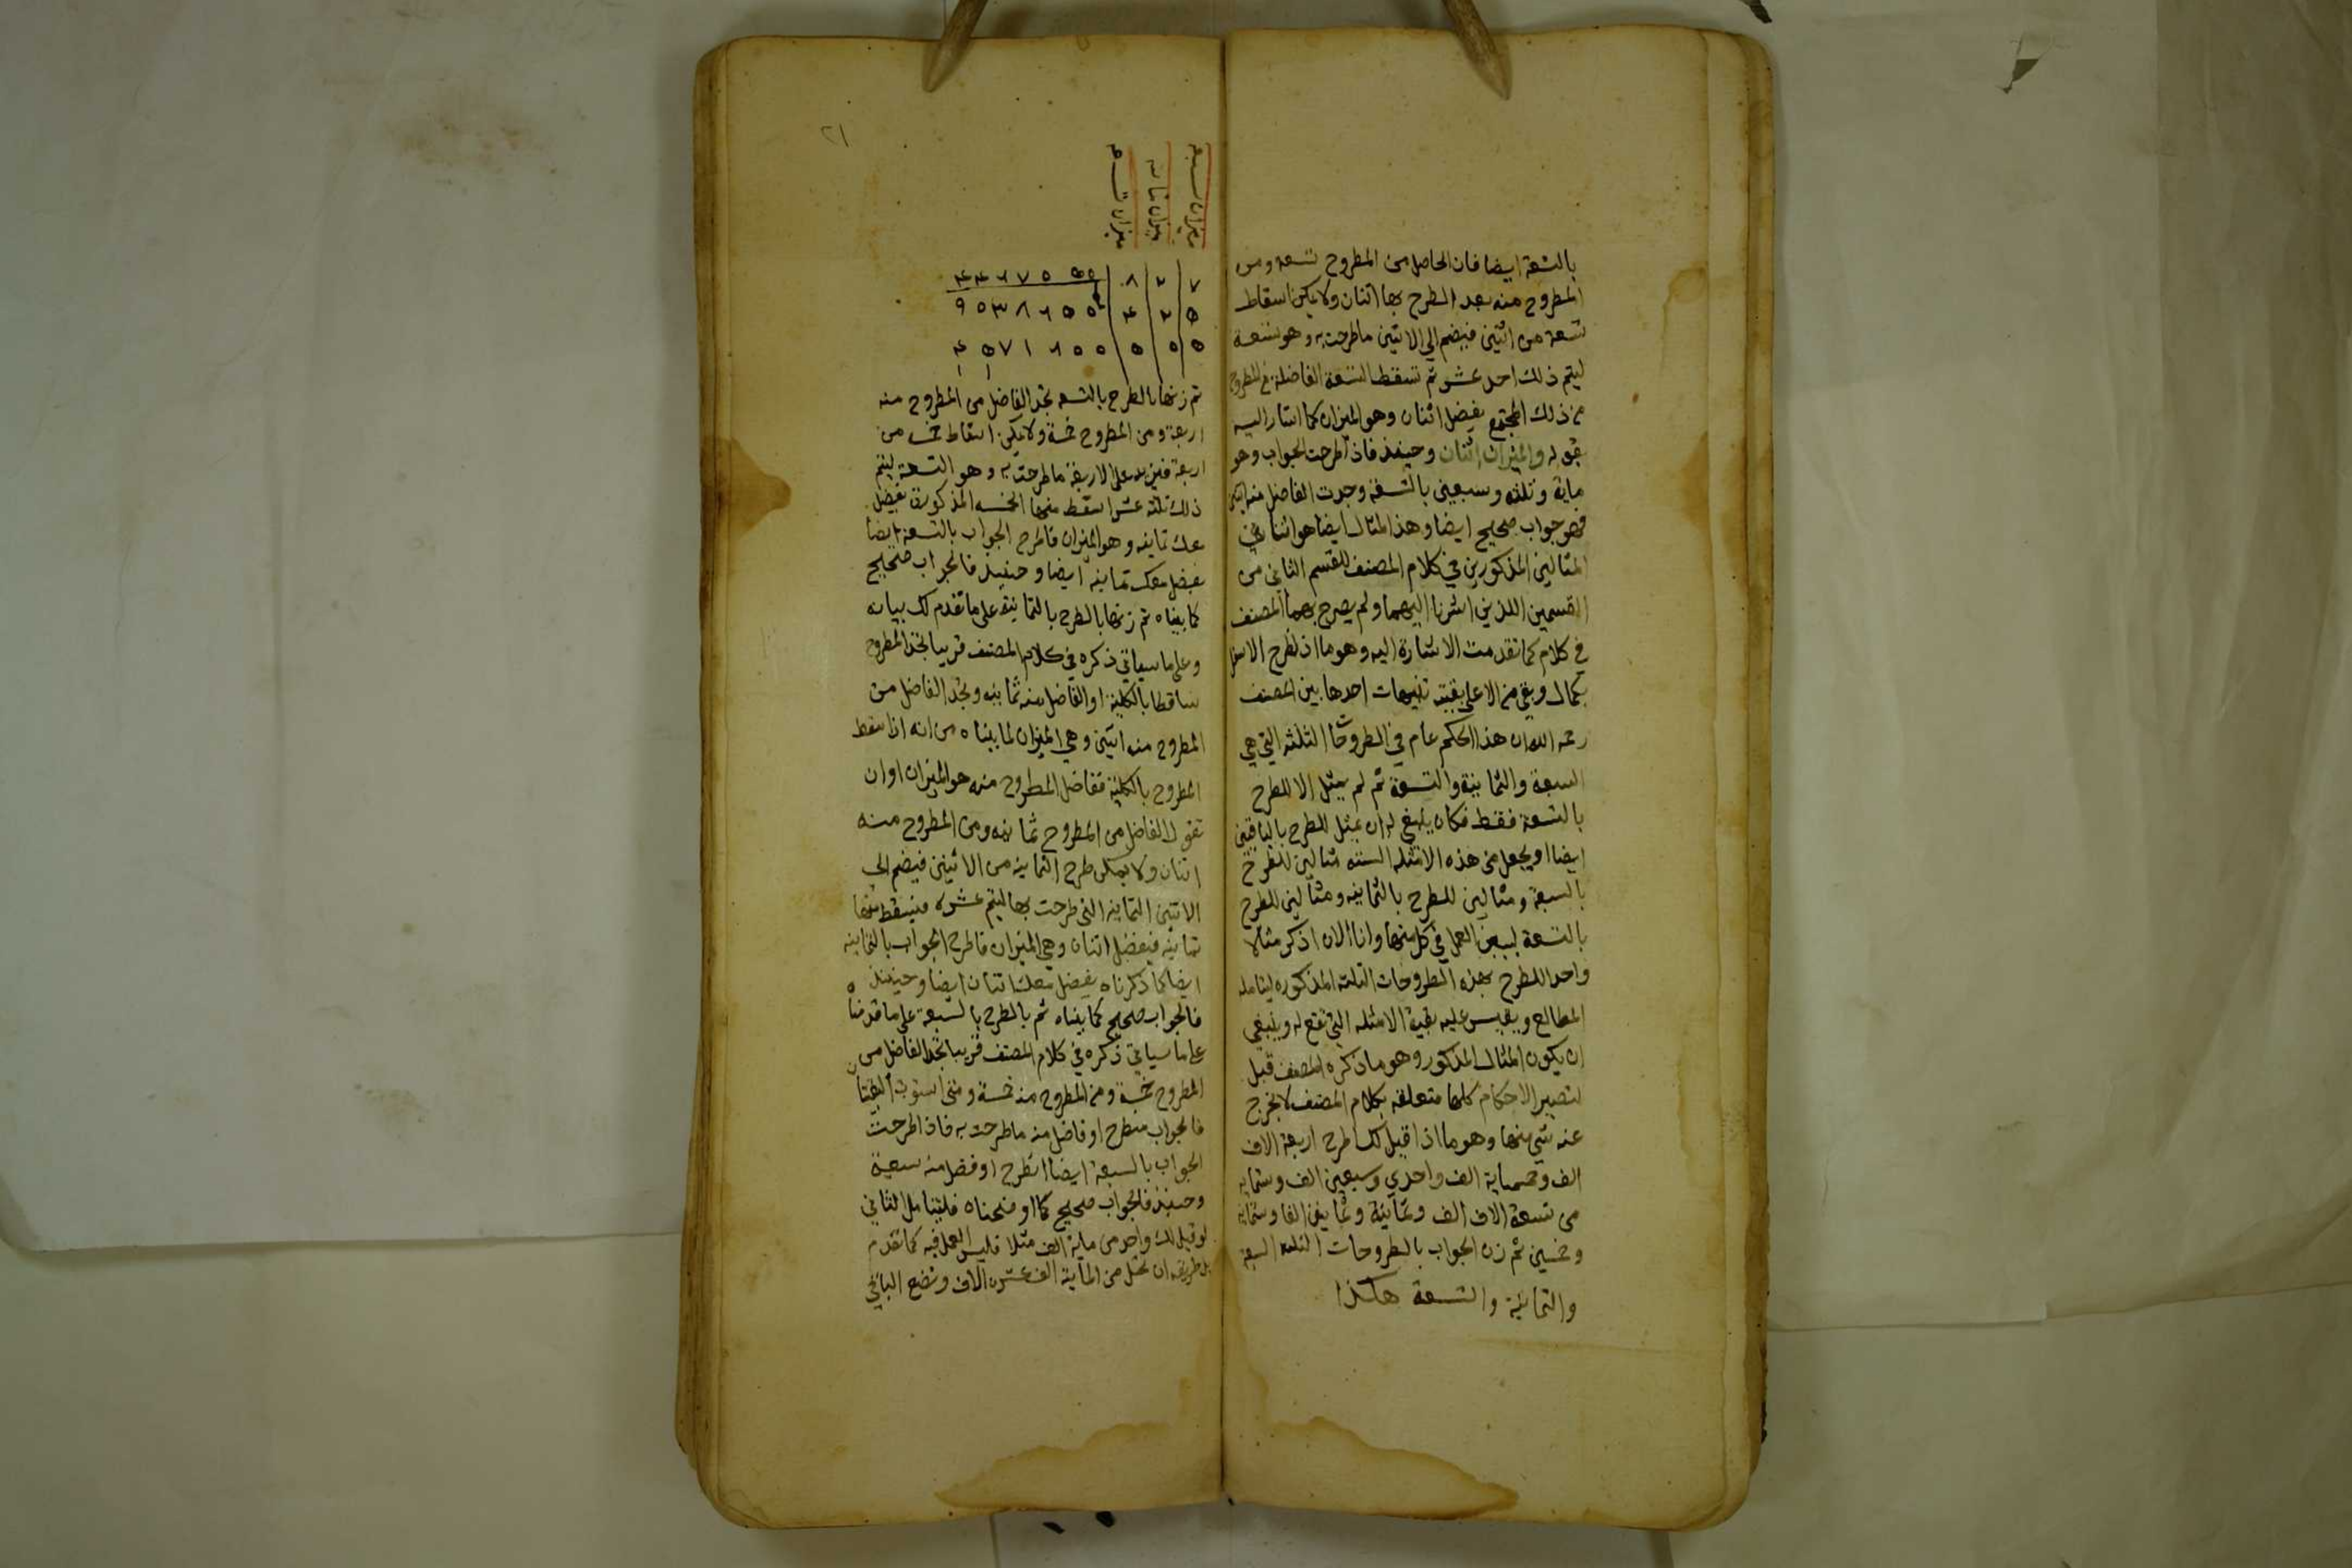 بالتسعة ايضا فان الحاصل من المطروح تسعة ومن
المطروح منه بعد الطرح بها اثنان ولا يمكن اسقاط
تسعة من اثنين فيضم الي الاثنين ما طرحت به وهو تسعة
ليتم ذلك احد عشر ثم تسقط التسعة الفاضلة من المطروح
من ذلك المجتمع يفضل اثنان وهو الميزان كما اشار اليه
بقوله والميزان اثنان وحينئذ فاذا طرحت الجواب وهو
ماية وثلثه وسبعين بالتسعة وجدت الفاضل منه اثنين
فهو جواب صحيح ايضا وهذا المثال ايضا هو اثنا في
المثالين المذكورين في كلام المصنف للقسم الثاني من
القسمين اللذين اشرنا اليهما ولم يصرح بهما المصنف
في كلام كما تقدمت الاشارة اليه وهو ما اذا طرح الاسفل
بكمال وبقي من الاعلي بقية تنبيهات احدها بين المصنف
رحمه الله ان هذا الحكم عام في الطروحات الثلثه التي هي
السبعة والثمانية والتسعة ثم لم يمثل الا للطرح
بالتسعة فقط فكان ينبغي له ان يمثل للطرح بالباقيتين
ايضا او يجعل من هذه الامثله السته مثالين للطرح
بالسبعة ومثالين للطرح بالثمانيه ومثالين للطرح
بالتسعة ليبين العمل في كل منها وانا الان اذكر مثالا
واحدا للطرح بهذه الطروحات الثلثه المذكوره ليتامله
المطالع ويقيس عليه بقية الامثله التي تقع له وينبغي
ان يكون المثال المذكور وهو ما ذكره المصنف قبل
لتصير الاحكام كلها متعلقه بكلام المصنف لا يخرج
عنه شي منها وهو ما اذا قيل لك اطرح اربعة الاف
الف وخمسماية الف واحدي وسبعين الف وستمايه
من تسعة الاف الف وثمانية وثمانين الفا وستمايه
وخمسين ثم زن الجواب بالطروحات الثلثه السبعة
والثمانية والتسعة هكذا
٢١
ميزان سبعه
ميزان ثمانيه
ميزان تسعه
ثم زنها بالطرح بالتسعه تجد الفاضل من المطروح منه
اربعة ومن المطروح خمسة ولا يمكن اسقاط خمسه من
اربعة فتزيد علي الاربعة ما طرحت به وهو التسعة ليتم
ذلك ثلثة عشر اسقط منها الخمسه المذكورة يفضل
معك ثمانيه وهو الميزان فاطرح الجواب بالتسعة ايضا
يفضل معك ثمانية ايضا وحينئذ فالجواب صحيح
كما بيناه ثم زنها بالطرح بالثمانية علي ما تقدم لك بيانه
وعلي ما سياتي ذكره في كلام المصنف قريبا تجد المطروح
ساقطا بالكلية او الفاضل منه ثمانيه وتجد الفاضل من
المطروح منه اثنين وهي الميزان لما بيناه من انه اذا سقط
المطروح بالكلية ففاضل المطروح منه هو الميزان او ان
تقول الفاضل من المطروح ثمانيه ومن المطروح منه
اثنان ولا يمكن طرح الثمانيه من الاثنين فيضم الي
الاثنين الثمانيه التي طرحت بها ليتم عشره فيسقط منها
ثمانيه فيفضل اثنان وهي الميزان فاطرح الجواب بالثمانيه
ايضا كما ذكرناه يفضل معك اثنان ايضا وحينئذ
فالجواب صحيح كما بيناه ثم بالطرح بالسبعة علي ما قدمناه
علي ما سياتي ذكره في كلام المصنف قريبا تجد الفاضل من
المطروح خمسة ومن المطروح منه خمسة ومتي استوت البقيتان
فالجواب منطرح او فاضل منه ما طرحت به فاذا طرحت
الجواب بالسبعة ايضا انطرح او فضل منه سبعة
وحينئذ فالجواب صحيح كما اوضحناه فليتامل الثاني
لو قيل لك واحد من ماية الف مثلا فليس العمل فيه كما تقدم
بل طريقه ان تحل من الماية الف عشرة الاف وتضع الباقي